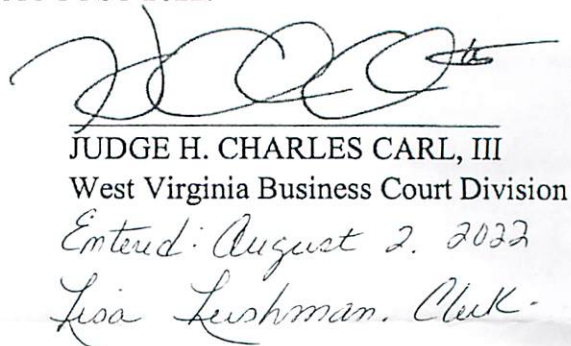 JUDGE H. CHARLES CARL, III
West Virginia Business Court Division
Entered: August 2. 2022
Lisa Leishman. Clerk.